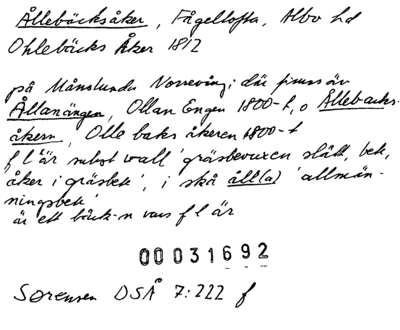 Ållebäcksåker, Fågeltofta, Albo hd
Ohlebäcks Åker 1812
på Månslunda Norreving; där finns äv
Ållanängen, Ollan Engen 1800-t, o Ållebacks-
åkern, Olle baks åkeren 1800-t
f l är subst vall 'gräsbevuxen slätt, bete,
åker i gräsbete', i skå åll(a) 'allmän-
ningsbete'
är ett bäck-n vars f l är
00031692
Sørensen DSÅ 7:222 f